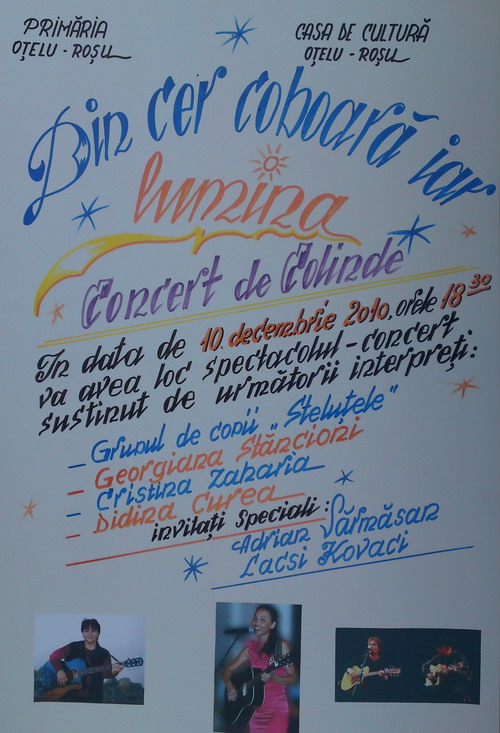 PRIMĂRIA
OȚELU - ROȘU
CASA DE CULTURĂ
OȚELU - ROȘU
Din cer coboară iar
lumina
Concert de Colinde
In data de 10.decembrie 2010.orele 18 30
va avea loc spectacolul-concert
susținut de următorii interpreți:
- Grupul de copii „Steluțele"
- Georgiana Stăncioni
- Cristina Zaharia
- Didina Curea
invitați speciali:
Adrian Sărmăsan
Lacsi Kovaci